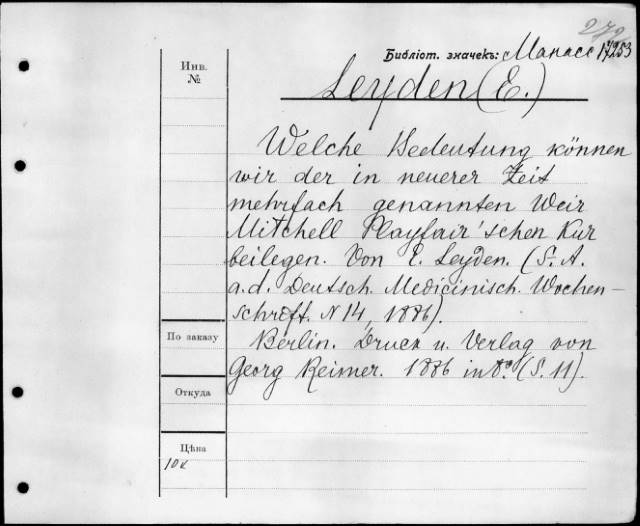 272
Библіот. значекъ: Манасс 17253
Инв.
№
Leyden (E.)
Welche Bedeutung können
wir der in neuerer Zeit
mehrfach genannten Weir
Mitchell Playfair'schen Kur
beilegen. Von E. Leyden. (S. A.
a. d. Deutsch. Medicinisch. Wochen-
schrift. N 14, 1886).
По заказу
Berlin. Druck u. Verlag von
Georg Reimer. 1886 in 8° (S. 11).
Откуда
Цѣна
10 к